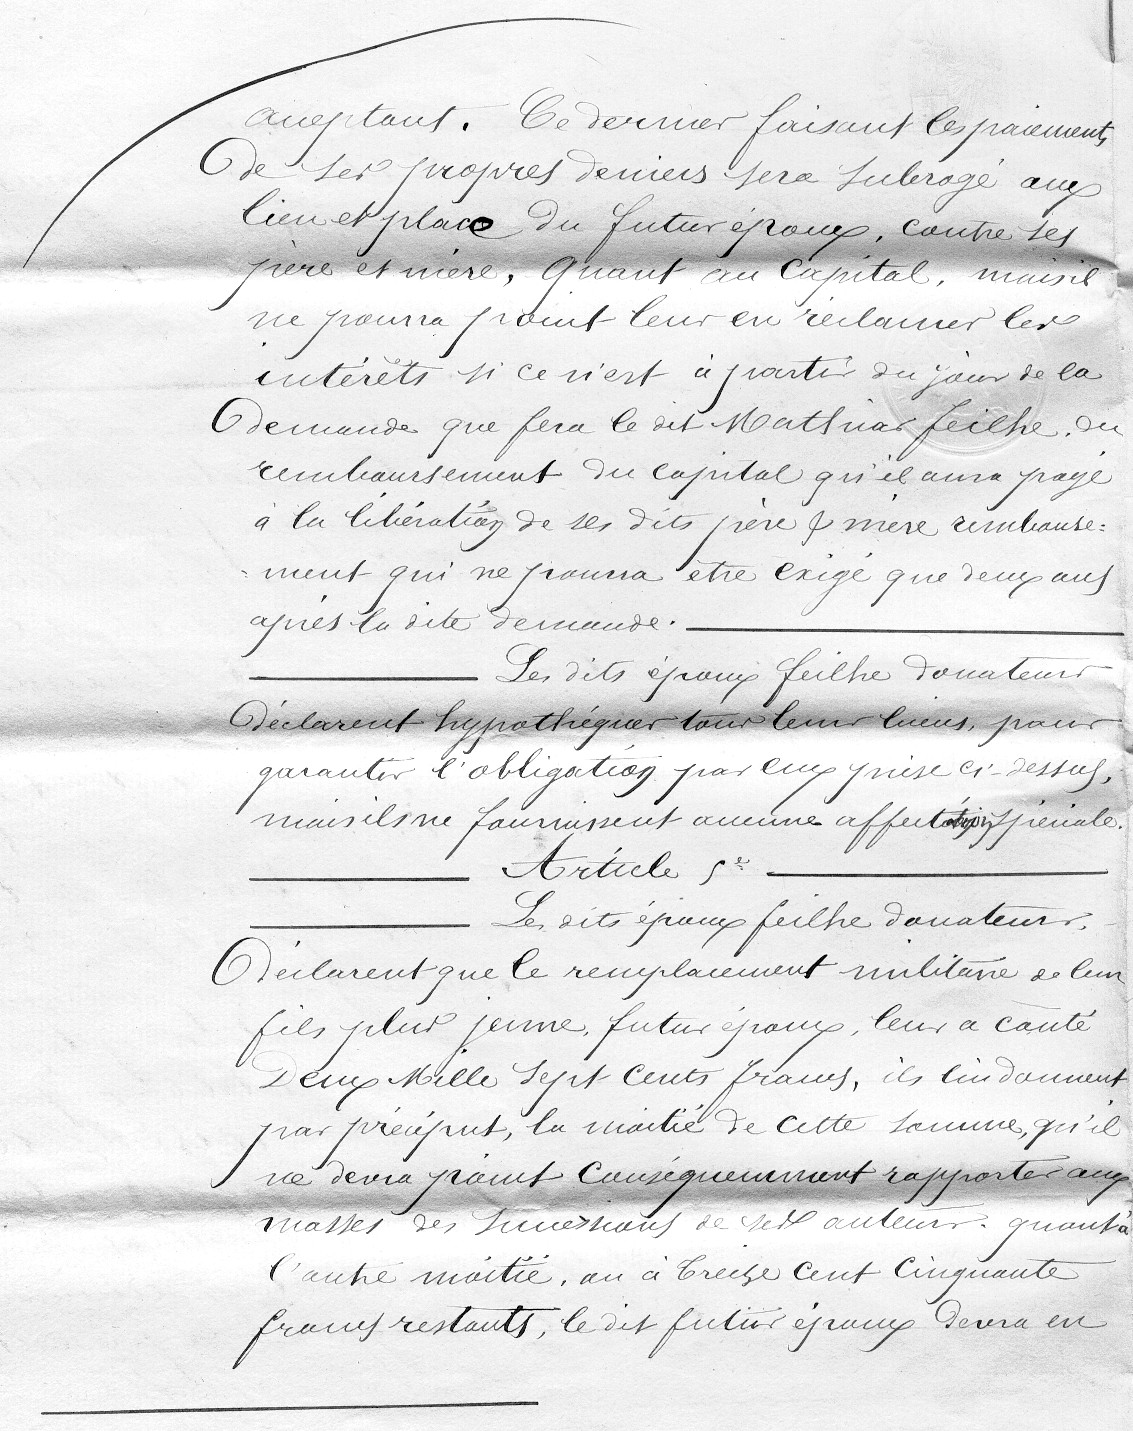 acceptant. Ce dernier faisant les paiements
de ses propres deniers sera subrogé aux
lieu et place du futur époux, contre ses
père et mère, quant au capital, mais il
ne pourra point leur en réclamer les
intérêts si ce n'est à partir du jour de la
demande que fera le dit Mathias feilhe, du
remboursement du capital qu'il aura payé
à la libération de ses dits père & mère rembourse=
=ment qui ne pourra être exigé que deux ans
après la dite demande.
Les dits époux feilhe donateurs
déclarent hypothéquer tous leurs biens, pour
garantir l'obligation par eux prise ci-dessus,
mais ils ne fournissent aucune affectation spéciale.
Article 5e
Les dits époux feilhe donateurs,
déclarent que le remplacement militaire de leur
fils plus jeune, futur époux, leur a couté
Deux Mille Sept Cents francs, ils lui donnent
par préciput, la moitié de cette somme, qu'il
ne devra point conséquemment rapporter aux
masses des successions de ses auteurs. quant à
l'autre moitié, ou à treize cent cinquante
francs restants, le dit futur époux devra en